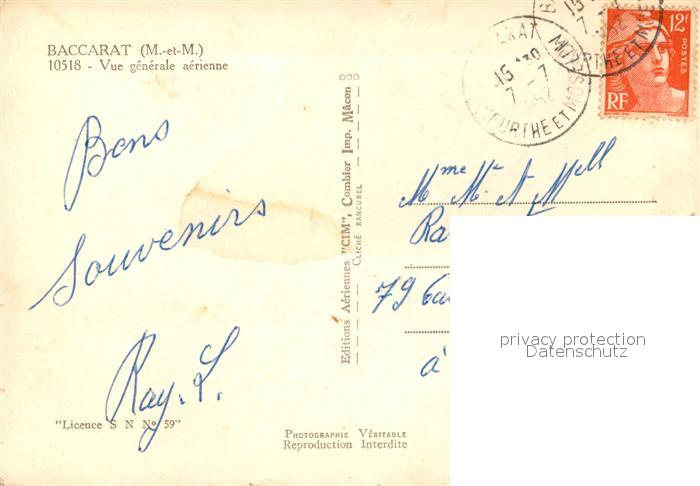 BACCARAT (M.-et-M.)
10518 - Vue générale aérienne
Bons
Souvenirs
Ray. L.
"Licence S N No 59"
Editions Aériennes "CIM", Combier Imp. Mâcon
CLICHÉ RANCUREL
PHOTOGRAPHIE VÉRITABLE
Reproduction Interdite
15
7 - 7
MEURTHE ET MOSELLE
12F
POSTES
RF
Mme Mr et Mell
Ra
79
à
privacy protection
Datenschutz